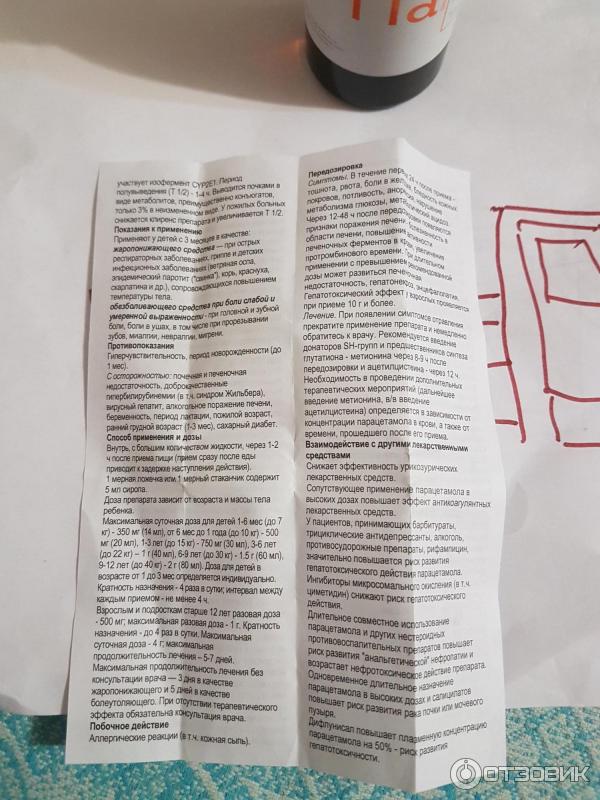 Па
участвует изофермент CYP2E1. Период
полувыведения (Т 1/2) - 1-4 ч. Выводится почками в
виде метаболитов, преимущественно конъюгатов,
только 3% в неизмененном виде. У пожилых больных
снижается клиренс препарата и увеличивается Т 1/2.
Показания к применению
Применяют у детей с 3 месяцев в качестве:
жаропонижающего средства — при острых
респираторных заболеваниях, гриппе и детских
инфекционных заболеваниях (ветряная оспа,
эпидемический паротит ("свинка"), корь, краснуха,
скарлатина и др.), сопровождающихся повышением
температуры тела.
обезболивающего средства при боли слабой и
умеренной выраженности - при головной и зубной
боли, боли в ушах, в том числе при прорезывании
зубов, миалгии, невралгии, мигрени.
Противопоказания
Гиперчувствительность, период новорожденности (до
1 мес).
С осторожностью: почечная и печеночная
недостаточность, доброкачественные
гипербилирубинемии (в т.ч. синдром Жильбера),
вирусный гепатит, алкогольное поражение печени,
беременность, период лактации, пожилой возраст,
ранний грудной возраст (1-3 мес), сахарный диабет.
Способ применения и дозы
Внутрь, с большим количеством жидкости, через 1-2
ч после приема пищи (прием сразу после еды
приводит к задержке наступления действия).
1 мерная ложка или 1 мерный стаканчик содержит
5 мл сиропа.
Доза препарата зависит от возраста и массы тела
ребенка.
Максимальная суточная доза для детей 1-6 мес (до 7
кг) - 350 мг (14 мл), от 6 мес до 1 года (до 10 кг) - 500
мг (20 мл), 1-3 лет (до 15 кг) - 750 мг (30 мл), 3-6 лет
(до 22 кг) – 1 г (40 мл), 6-9 лет (до 30 кг) - 1.5 г (60 мл),
9-12 лет (до 40 кг) - 2 г (80 мл). Доза для детей в
возрасте от 1 до 3 мес определяется индивидуально.
Кратность назначения - 4 раза в сутки; интервал между
каждым приемом - не менее 4 ч.
Взрослым и подросткам старше 12 лет разовая доза
- 500 мг; максимальная разовая доза - 1 г. Кратность
назначения - до 4 раз в сутки. Максимальная
суточная доза - 4 г; максимальная
продолжительность лечения – 5-7 дней.
Максимальная продолжительность лечения без
консультации врача — 3 дня в качестве
жаропонижающего и 5 дней в качестве
болеутоляющего. При отсутствии терапевтического
эффекта обязательна консультация врача.
Побочное действие
Аллергические реакции (в т.ч. кожная сыпь).
Передозировка
Симптомы. В течение первых 24 ч после приема -
тошнота, рвота, боли в желудке, бледность кожных
покровов, потливость, анорексия, нарушение
метаболизма глюкозы, метаболический ацидоз.
Через 12-48 ч после передозировки появляются
признаки поражения печени (болезненность в
области печени, повышение активности
печеночных ферментов в крови, увеличение
протромбинового времени). При длительном
применении с превышением рекомендованной
дозы может развиться печеночная
недостаточность, гепатонекроз, энцефалопатия.
Гепатотоксический эффект у взрослых проявляется
при приеме 10 г и более.
Лечение. При появлении симптомов отравления
прекратите применение препарата и немедленно
обратитесь к врачу. Рекомендуется введение
донаторов SH-групп и предшественников синтеза
глутатиона - метионина через 8-9 ч после
передозировки и ацетилцистеина - через 12 ч.
Необходимость в проведении дополнительных
терапевтических мероприятий (дальнейшее
введение метионина, в/в введение
ацетилцистеина) определяется в зависимости от
концентрации парацетамола в крови, а также от
времени, прошедшего после его приема.
Взаимодействие с другими лекарственными
средствами
Снижает эффективность урикозурических
лекарственных средств.
Сопутствующее применение парацетамола в
высоких дозах повышает эффект антикоагулянтных
лекарственных средств.
У пациентов, принимающих барбитураты,
трициклические антидепрессанты, алкоголь,
противосудорожные препараты, рифампицин,
значительно повышается риск развития
гепатотоксического действия парацетамола.
Ингибиторы микросомального окисления (в т.ч.
циметидин) снижают риск гепатотоксического
действия.
Длительное совместное использование
парацетамола и других нестероидных
противовоспалительных препаратов повышает
риск развития "анальгетической" нефропатии и
возрастает нефротоксическое действие препарата.
Одновременное длительное назначение
парацетамола в высоких дозах и салицилатов
повышает риск развития рака почки или мочевого
пузыря.
Дифлунисал повышает плазменную концентрацию
парацетамола на 50% - риск развития
гепатотоксичности.
ОТЗОВИК